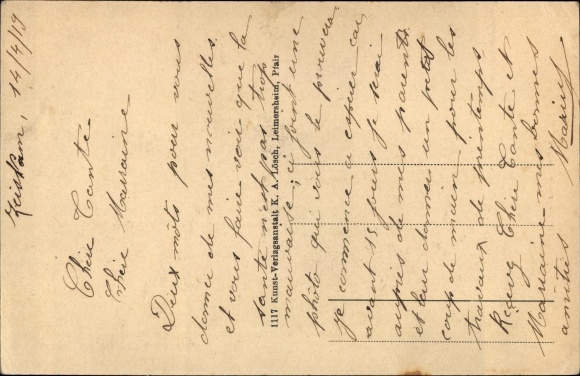 Zeiskam, 14/4/19
Chère Tante
Chère Marraine
Deux mots pour vous
donner de mes nouvelles
et vous faire voir que la
santé n'est pas trop
mauvaise, ci joint une
photo qui vous le prouvera
je commence a espérer car
avant 15 jours je serai
auprès de mes parents
et leur donner un petit
coup de main pour les
travaux de printemps.
Recevez Chère Tante et
Marraine mes bonnes
amitiés
Marius
1117 Kunst-Verlagsanstalt K. A. Lösch, Leimersheim, Pfalz